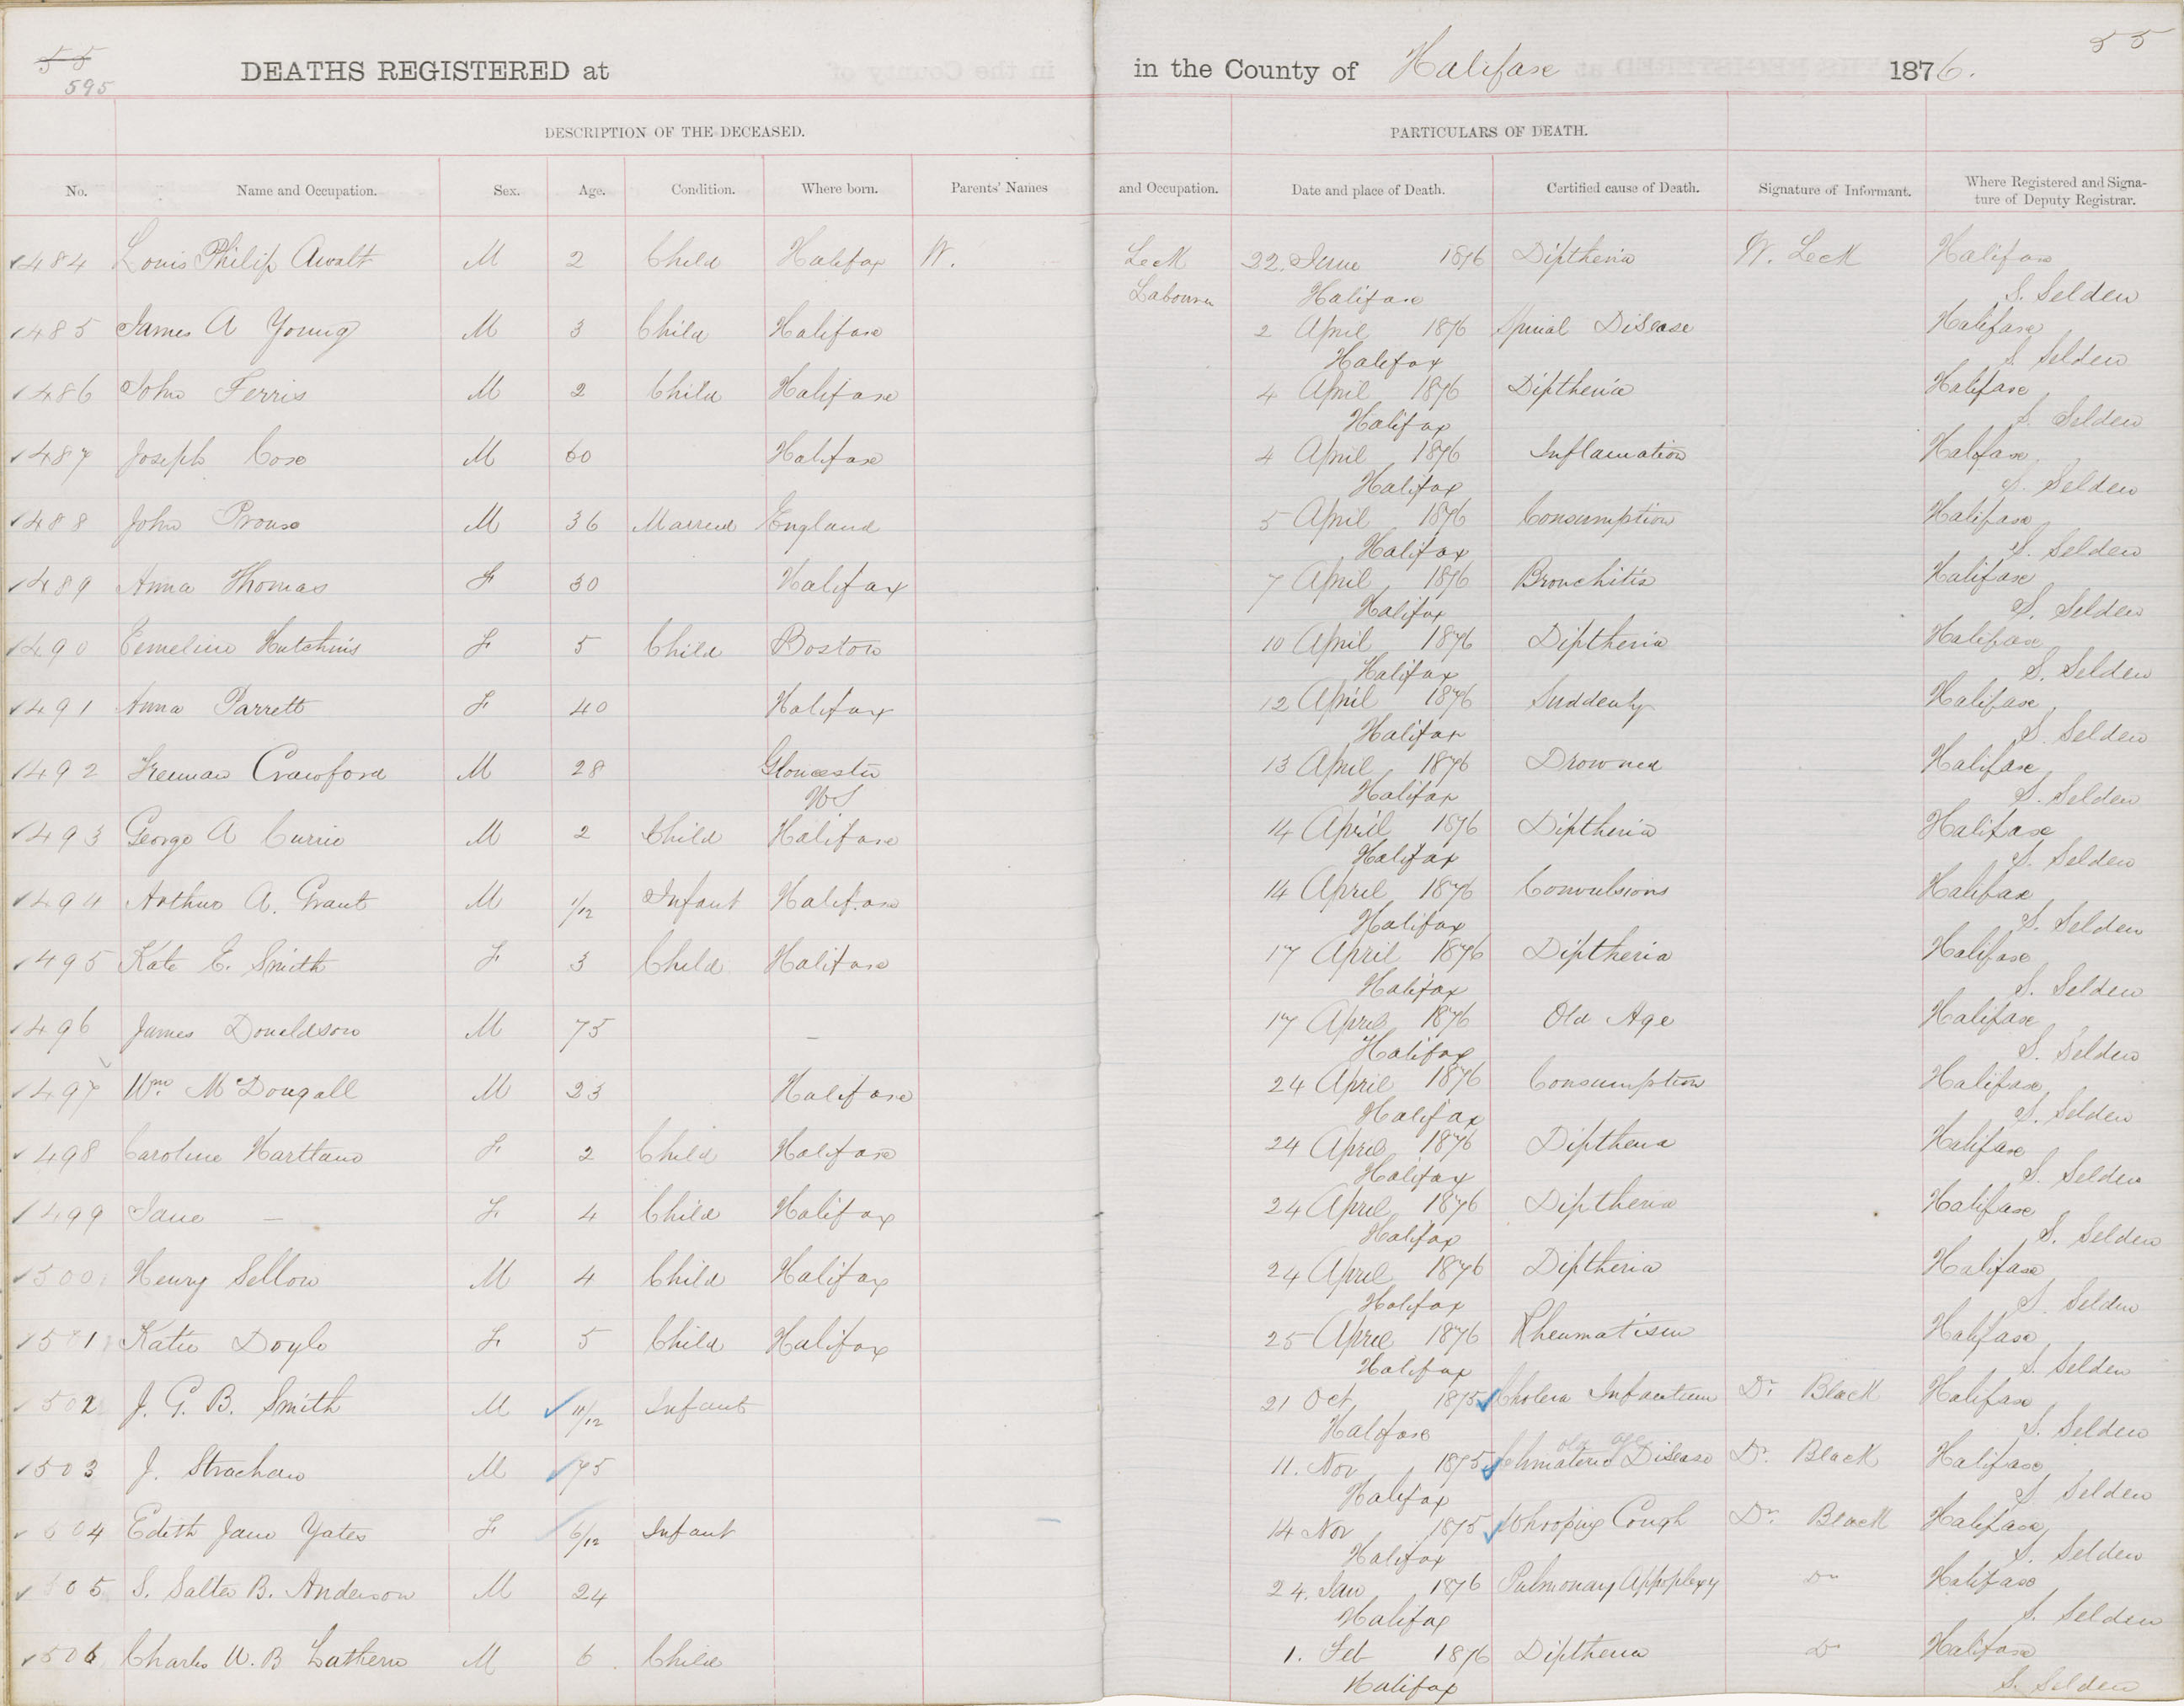 55
595
DEATHS REGISTERED at
in the County of Halifax 1876.
55
DESCRIPTION OF THE DECEASED.
PARTICULARS OF DEATH.
No. Name and Occupation. Sex. Age. Condition. Where born. Parents' Names and Occupation. Date and place of Death. Certified cause of Death. Signature of Informant. Where Registered and Signa-
ture of Deputy Registrar.
484 Louis Philip Awalt M 2 Child Halifax W. Leck 22. June 1876 Diptheria W. Leck Halifax
Labourer Halifax S. Selden
485 James A Young M 3 Child Halifax 2 April 1876 Spinal Disease Halifax
Halifax S Selden
486 John Ferris M 2 Child Halifax 4 April 1876 Diptheria Halifax
Halifax S. Selden
487 Joseph Cox M 60 Halifax 4 April 1876 Inflamation Halifax
Halifax S. Selden
488 John Prouse M 36 Married England 5 April 1876 Consumption Halifax
Halifax S. Selden
489 Anna Thomas F 30 Halifax 7 April 1876 Bronchitis Halifax
Halifax S. Selden
490 Emeline Hutchins F 5 Child Boston 10 April 1876 Diptheria Halifax
Halifax S. Selden
491 Anna Parrett F 40 Halifax 12 April 1876 Suddenly Halifax
Halifax S. Selden
492 Freeman Crawford M 28 Gloucester 13 April 1876 Drowned Halifax
Halifax S. Selden
493 George A Currie M 2 Child Halifax 14 April 1876 Diptheria Halifax
Halifax S. Selden
494 Arthur A. Grant M 1/12 Infant Halifax 14 April 1876 Convulsions Halifax
Halifax S. Selden
495 Kate E. Smith F 3 Child Halifax 17 April 1876 Diptheria Halifax
Halifax S. Selden
496 James Donaldson M 75 – 17 April 1876 Old Age Halifax
Halifax S. Selden
497 Wm. McDougall M 23 Halifax 24 April 1876 Consumption Halifax
Halifax S. Selden
498 Caroline Hartland F 2 Child Halifax 24 April 1876 Diptheria Halifax
Halifax S. Selden
499 Jane – F 4 Child Halifax 24 April 1876 Diptheria Halifax
Halifax S. Selden
500 Henry Sellon M 4 Child Halifax 24 April 1876 Diptheria Halifax
Halifax S. Selden
501 Katie Doyle F 5 Child Halifax 25 April 1876 Rheumatism Halifax
Halifax S. Selden
502 J. G. B. Smith M 11/12 Infant 21 Oct 1875 Cholera Infantum Dr. Black Halifax
Halifax S. Selden
old age
503 J. Strachan M 75 11. Nov 1875 Disease Dr. Black Halifax
Halifax S Selden
504 Edith Jane Yates F 6/12 Infant 14 Nov 1875 Whooping Cough Dr. Black Halifax
Halifax S. Selden
505 S. Salter B. Anderson M 24 24. Jan 1876 Pulmonary Appoplexy Do Halifax
Halifax S. Selden
506 Charles W. B Lathern M 6 Child 1. Feb 1876 Diptheria Do Halifax
Halifax S. Selden